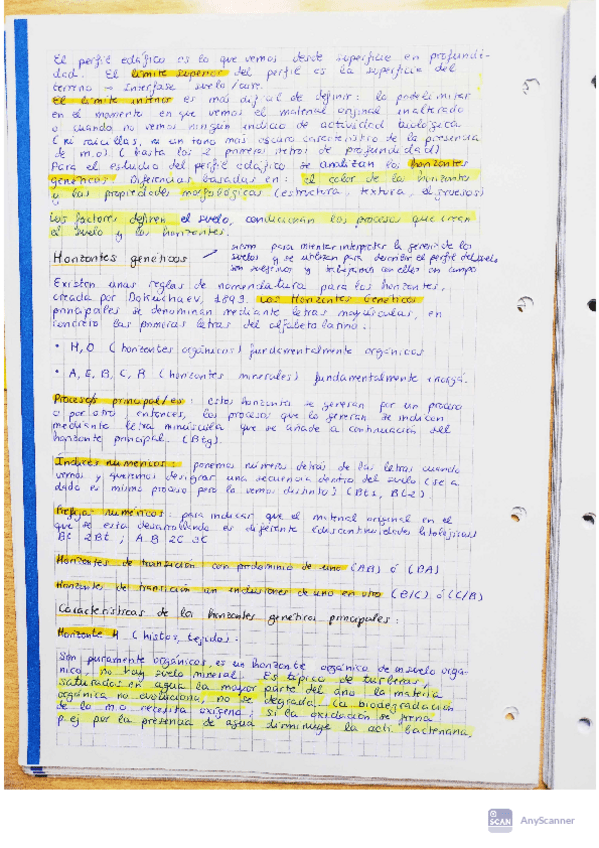 El perfil edáfico es lo que vemos desde superficie en profundi-
dad. El límite superior del perfil es la superficie del
terreno → Interfase suelo/aire.
El límite inferior es más difícil de definir: lo podelimitar
en el momento en que vemos el material original inalterado
o cuando no vemos ningún indicio de actividad biológica
(ni raicillas, ni un tono más oscuro característico de la presencia
de m.o) (hasta los 2 primeros metros de profundidad)
Para el estudio del perfil edáfico se analizan los horizontes
genéticos. Diferencias basadas en: el color de los horizontes
y las propiedades morfológicas (estructura, textura, el grosor)
Los factores definen el suelo, conducirán los procesos que crean
el suelo y los horizontes.
Horizontes genéticos → sirven para intentar interpretar la génesis de los
suelos y se utilizan para describir el perfil del suelo
son subjetivos y trabajamos con ellos en campo
Existen unas reglas de nomenclatura para los horizontes,
creada por Dokuchaev, 1893. Los Horizontes Genéticos
principales se denominan mediante letras mayúsculas, en
concreto las primeras letras del alfabeto latino:
• H, O (horizontes orgánicos) fundamentalmente orgánicos
• A, E, B, C, R (horizontes minerales) fundamentalmente inorgá.
Procesos principal/es: estos horizontes se generan por un proceso
o por otro, entonces, los procesos que lo generan se indican
mediante letra minúscula que se añade a continuación del
horizonte principal. (Btg).
Índices numéricos: ponemos números detrás de las letras cuando
vemos y queremos designar una secuencia dentro del suelo (se a
dado un mismo proceso pero lo vemos distinto) (Bt1, Bt2)
Prefijos numéricos: para indicar que el material original en el
que se está desarrollando es diferente (discontinuidades litológicas)
Bt 2Bt ; A B 2C 3C
Horizontes de transición con predominio de uno (AB) ó (BA)
Horizontes de transición con inclusiones de uno en otro (B/C) ó (C/B)
Características de los horizontes genéticos principales:
Horizonte H (histos, tejidos):
Son puramente orgánicos, es un horizonte orgánico de un suelo orgá-
nico, no hay suelo mineral. Es típico de turberas,
saturados en agua la mayor parte del año. la materia
orgánica no evoluciona, no se degrada. La biodegradación
de la m.o. necesita oxígeno; si la oxidación se frena
p.ej por la presencia de agua disminuye la acti. bacteriana,
SCAN AnyScanner